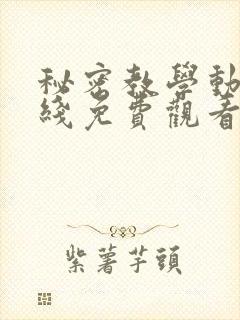 秘密教學動
綫免費觀看
紫薯芋頭